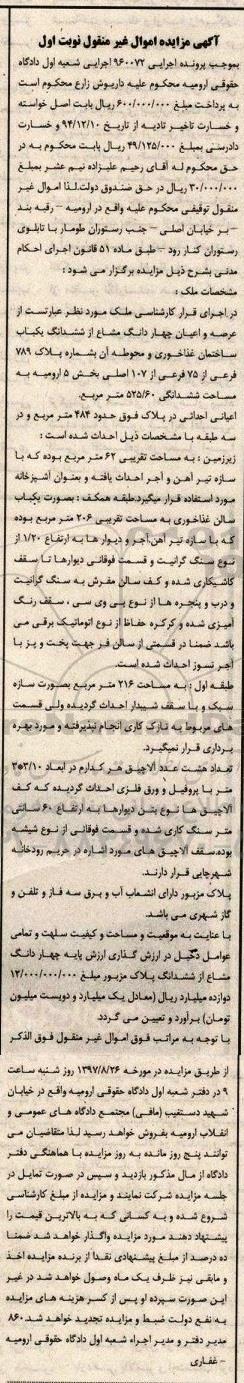 آگهی مزایده اموال غیر منقول نوبت اول
بموجب پرونده اجرایی ۹۶۰۰۷۲ اجرایی شعبه اول دادگاه
حقوقی ارومیه محکوم علیه داریوش زارع محکوم است
به پرداخت مبلغ ۶۰۰/۰۰۰/۰۰۰ ریال بابت اصل خواسته
و خسارت تاخیر تادیه از تاریخ ۹۴/۱۲/۱۰ و خسارت
دادرسی بمبلغ ۴۹/۱۲۵/۰۰۰ ریال بابت محکوم به در
حق محکوم له آقای رحیم علیزاده نیم عشر بمبلغ
۳۰/۰۰۰/۰۰۰ ریال در حق صندوق دولت.لذا اموال غیر
منقول توقیفی محکوم علیه واقع در ارومیه – رقبه بند
– بر خیابان اصلی – جنب رستوران طومار با تابلوی
رستوران کنار رود – طبق ماده ۵۱ قانون اجرای احکام
مدنی بشرح ذیل مزایده برگزار می شود :
مشخصات ملک :
در اجرای قرار کارشناسی ملک مورد نظر عبارتست از
عرصه و اعیان چهار دانگ مشاع از ششدانگ یکباب
ساختمان غذاخوری و محوطه آن بشماره پلاک ۷۸۹
فرعی از ۷۵ فرعی از ۱۰۷ اصلی بخش ۵ ارومیه به
مساحت ششدانگی ۵۲۵/۶۰ متر مربع.
اعیانی احداثی در پلاک فوق حدود ۴۸۴ متر مربع و در
سه طبقه با مشخصات ذیل احداث شده است :
زیرزمین : به مساحت تقریبی ۶۲ متر مربع بوده که با
سازه تیر آهن و آجر احداث یافته و بعنوان آشپزخانه
مورد استفاده قرار میگیرد.طبقه همکف : بصورت یکباب
سالن غذاخوری به مساحت تقریبی ۲۰۶ متر مربع بوده
که با سازه تیر آهن،آجر و دیوار ها به ارتفاع ۱/۲۰ از
نوع سنگ گرانیت و قسمت فوقانی دیوارها تا سقف
کاشیکاری شده و کف سالن مفرش به سنگ گرانیت
و درب و پنجره ها از نوع پی وی سی ، سقف رنگ
آمیزی شده و کرکره حفاظ از نوع اتوماتیک برقی می
باشد ضمنا در قسمتی از سالن فر جهت پخت و پز با
آجر نسوز احداث شده است.
طبقه اول : به مساحت ۲۱۶ متر مربع بصورت سازه
سبک و با سقف شیبدار احداث گردیده ولی قسمت
های مربوط به نازک کاری انجام نپذیرفته و مورد بهره
برداری قرار نمیگیرد.
تعداد هشت عدد آلاچیق هر کدارم در ابعاد ۳×۳/۱۰
متر با پروفیل و ورق فلزی احداث گردیده که کف
آلاچیق ها نوع بتن دیوارها به ارتفاع ۶۰ سانتی
متر سنگ کاری شده و قسمت فوقانی از نوع شیشه
بوده.سقف آلاچیق های مورد اشاره در حریم رودخانه
شهرچایی قرار دارند.
پلاک مزبور دارای انشعاب آب و برق سه فاز و تلفن و
گاز شهری می باشد.
با عنایت به موقعیت و مساحت و کیفیت سلهت و تمامی
عوامل دخیل در ارزش گذاری ارزش پایه چهار دانگ
مشاع از ششدانگ پلاک مزبور مبلغ ۱۲/۰۰۰/۰۰۰/۰۰۰
دوازده میلیارد ریال (معادل یک میلیارد و دویست میلیون
تومان) برآورد و تعیین می گردد.
با توجه به مراتب فوق اموال غیر منقول فوق الذکر
از طریق مزایده در مورخه ۱۳۹۷/۸/۲۶ روز شنبه ساعت
۹ در دفتر شعبه اول دادگاه حقوقی ارومیه واقع در خیابان
شهید دستغیب (مافی) مجتمع دادگاه های عمومی و
انقلاب ارومیه بفروش خواهد رسید لذا متقاضیان می
توانند پنج روز مانده به روز مزایده با هماهنگی دفتر
دادگاه از مال مذکور بازدید و سپس در صورت تمایل در
جلسه مزایده شرکت نمایند و مزایده از مبلغ کارشناسی
شروع شده و به کسانی که به بالاترین قیمت را
پیشنهاد دهند مورد مزایده واگذار خواهد شد ضمنا
ده درصد از مبلغ پیشنهادی نقدا از برنده مزایده اخذ
و مابقی نیز ظرف یک ماه وصول خواهد شد در غیر
این صورت سپرده او پس از کسر هزینه های مزایده
به نفع دولت ضبط و مزایده تجدید خواهد شد. ۸۶۰
مدیر دفتر و مدیر اجراء شعبه اول دادگاه حقوقی ارومیه
– غفاری